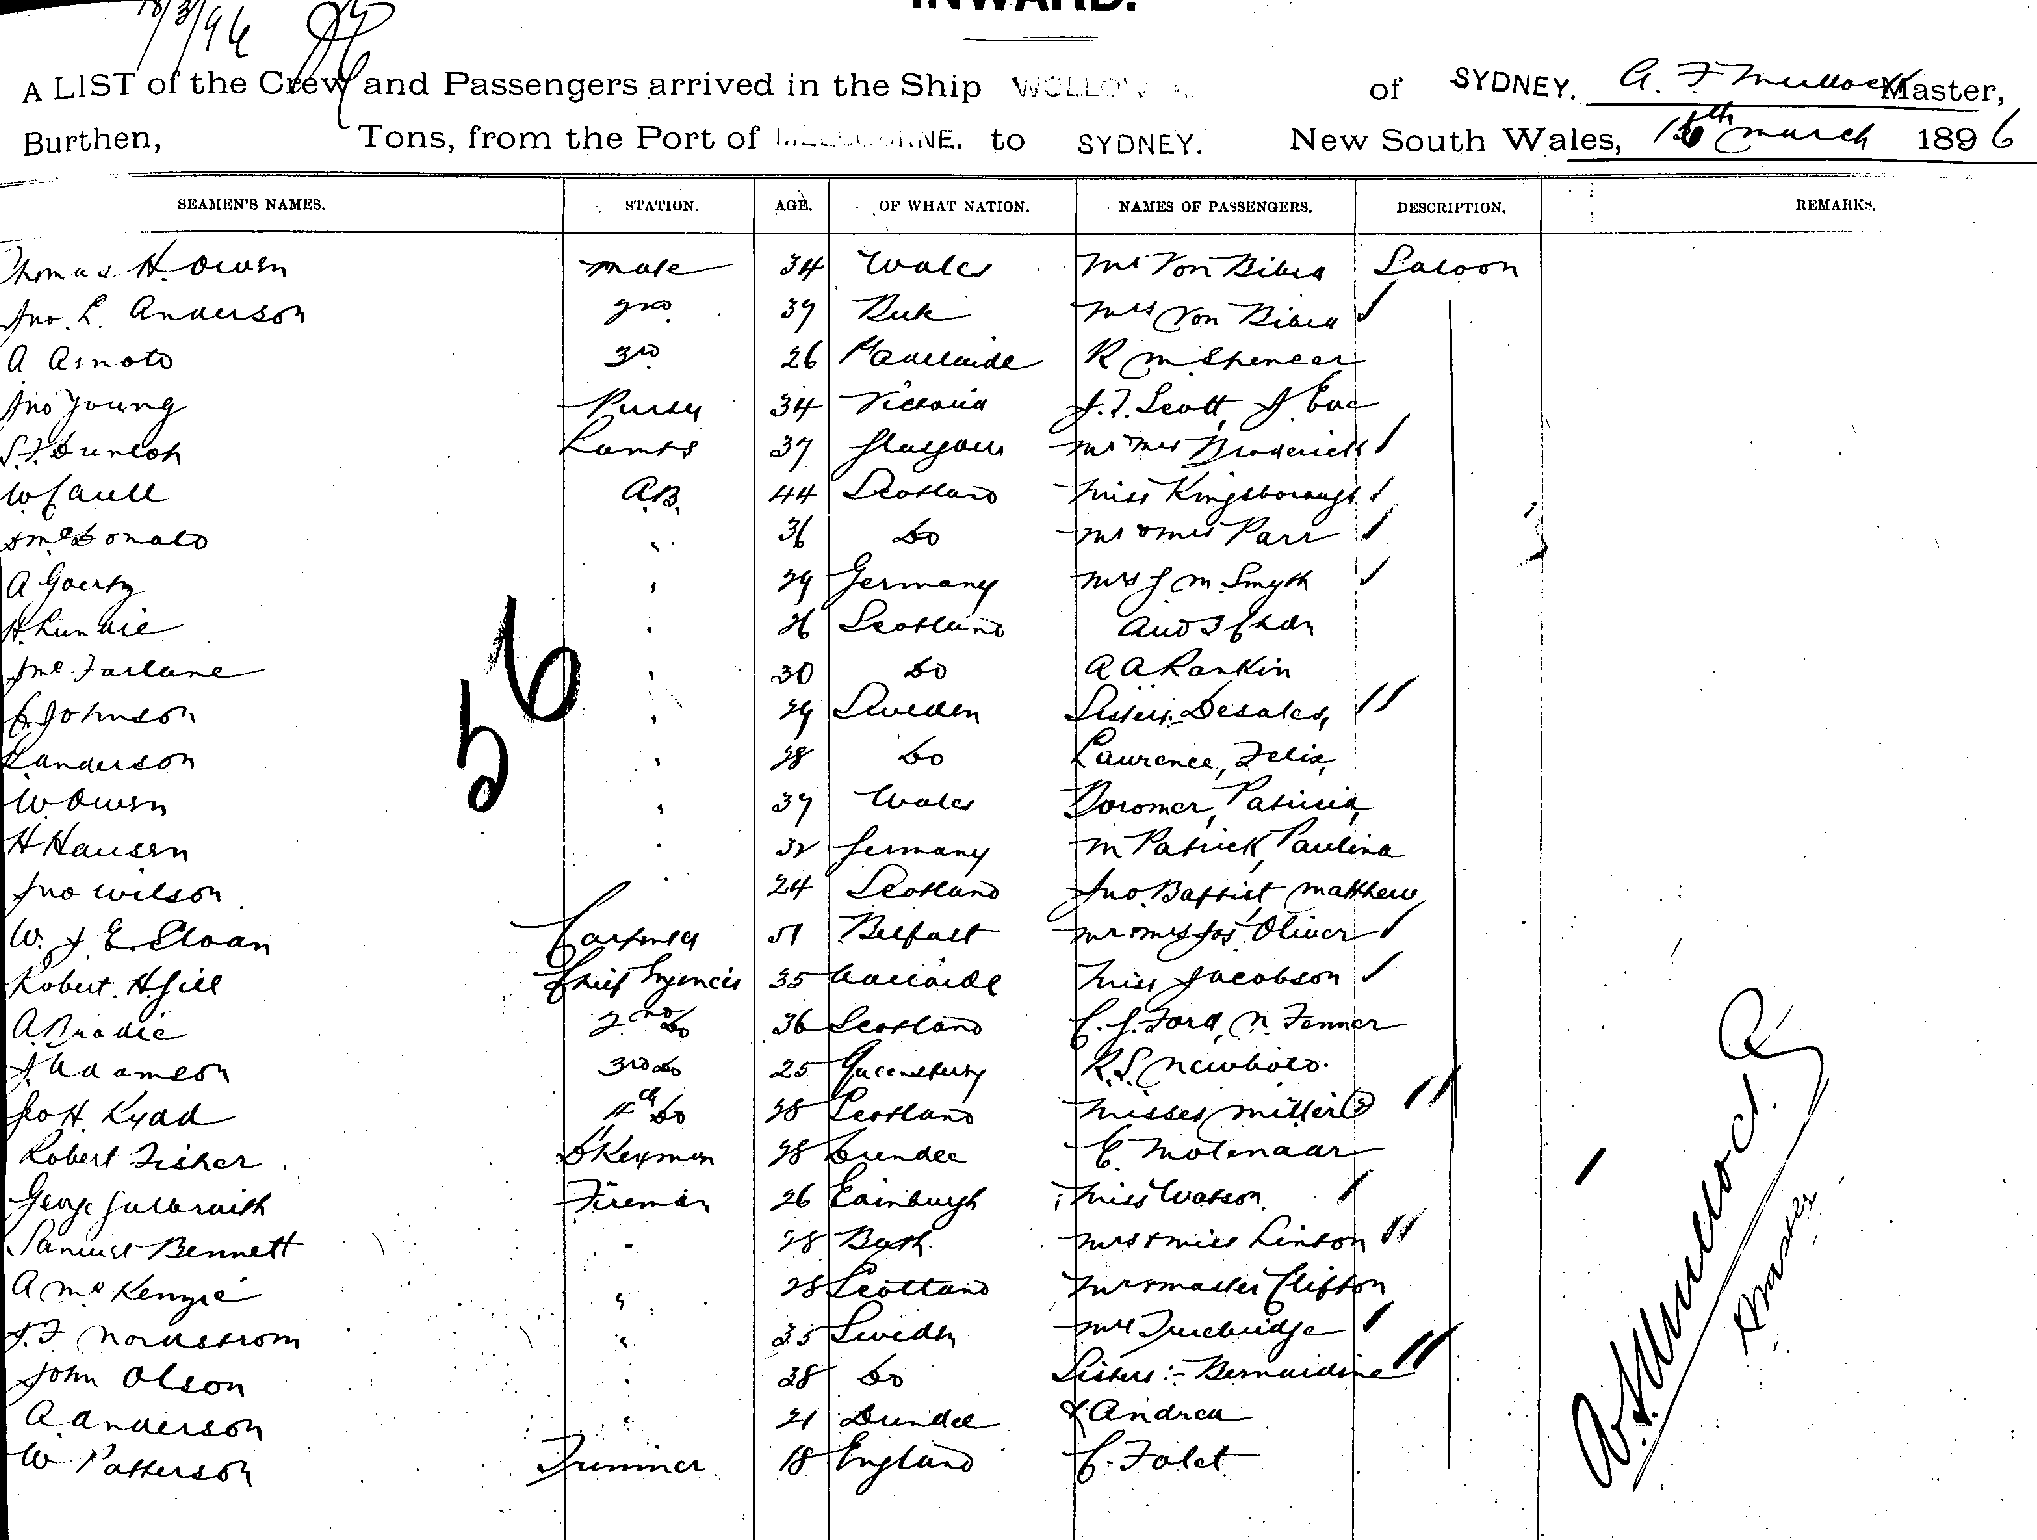 18/3/96
INWARD.
A LIST of the Crew and Passengers arrived in the Ship WOLLOWRA of SYDNEY. A. F Mullock Master,
Burthen, Tons, from the Port of MELBOURNE. to SYDNEY. New South Wales, 16th March 1896
SEAMEN'S NAMES. STATION. AGE. OF WHAT NATION. NAMES OF PASSENGERS. DESCRIPTION. REMARKS.
Thomas H. Owen Mate 34 Wales Mr Von Bibra Saloon
Jno. L. Anderson 2nd 39 Mrs Von Bibra
A Arnold 3rd 26 Pt Adelaide R M Spencer
Jno Young Purser 34 Victoria J. F. Scott, J
S. F. Dunlop Lamps 37 Glasgow Mr Mrs Broderick
W. Caull A.B. 44 Scotland Miss Kingsborough
McDonald " 36 Do Mr & Mrs Parr
A Goertz " 29 Germany Mrs J M Smyth
H. Lundie " 26 Scotland
J Mc Farlane " 30 Do A A Rankin
C. Johnson " 29 Sweden Sisters Desales,
Anderson " 28 Do Laurence, Felix,
W. Owen " 37 Wales Boromer, Patricia,
H Hansen " 32 Germany M Patrick, Paulina
Jno Wilson " 24 Scotland Jno. Baptist Matthew
W. J. E. Sloan Carpenter 51 Belfast Mr & Mrs Jos. Oliver
Robert H Gill Chief Engineer 35 Adelaide Miss Jacobson
A. Brodie 2nd Do 36 Scotland C. J. Ford, N. Fenner
J. Adamson 3rd Do 25 Queensferry R. S. Newbold.
Geo H. Kydd 4th Do 28 Scotland Misses Miller (2)
Robert Fisher D'Keyman 28 Dundee C. Molenaar
George Galbraith Fireman 26 Edinburgh Miss Watson
Samuel Bennett " 28 Bath Mrs & Miss Linton
A McKenzie " 28 Scotland Mr & Master Clifton
J. F Nordstrom " 35 Sweden Mrs Truebridge
John Olson " 38 Do Sisters :- Bernardine
A. Anderson " 21 Dundee & Andrea
W Patterson Trimmer 18 England C. Folet
56
A. F. Mullock.
Master